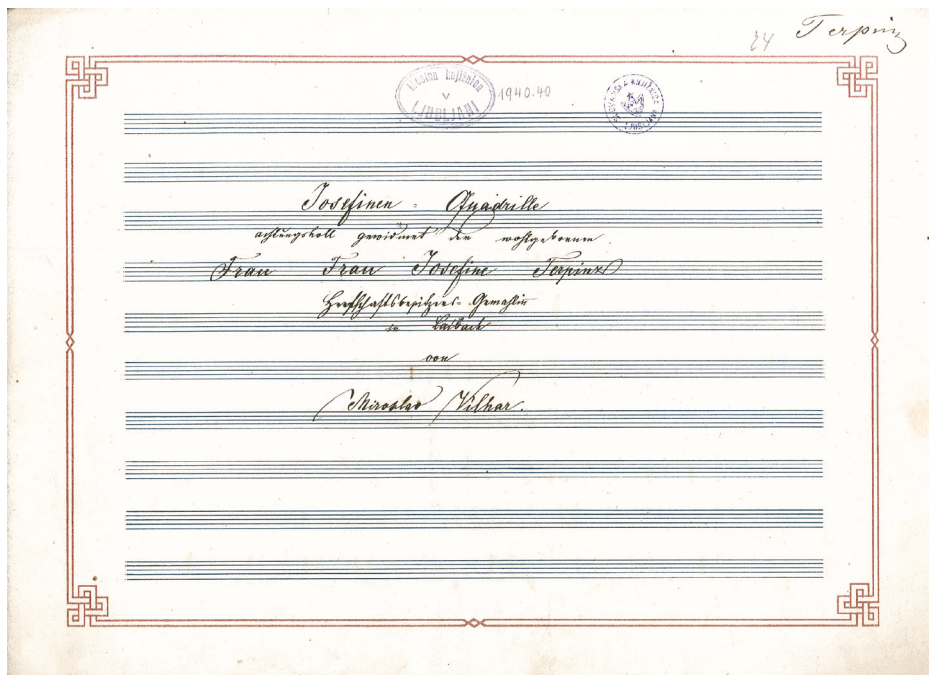 24 Terpinz
Licejna knjižnica
v
LJUBLJANI
1940.40
LJUBLJANI
Josefinen - Quadrille
achtungsvoll gewidmet der wohlgeborenen
Frau Frau Josefine Terpinz
Herrschaftsbesitzers-Gemahlin
in Laibach
von
Miroslav Vilhar.